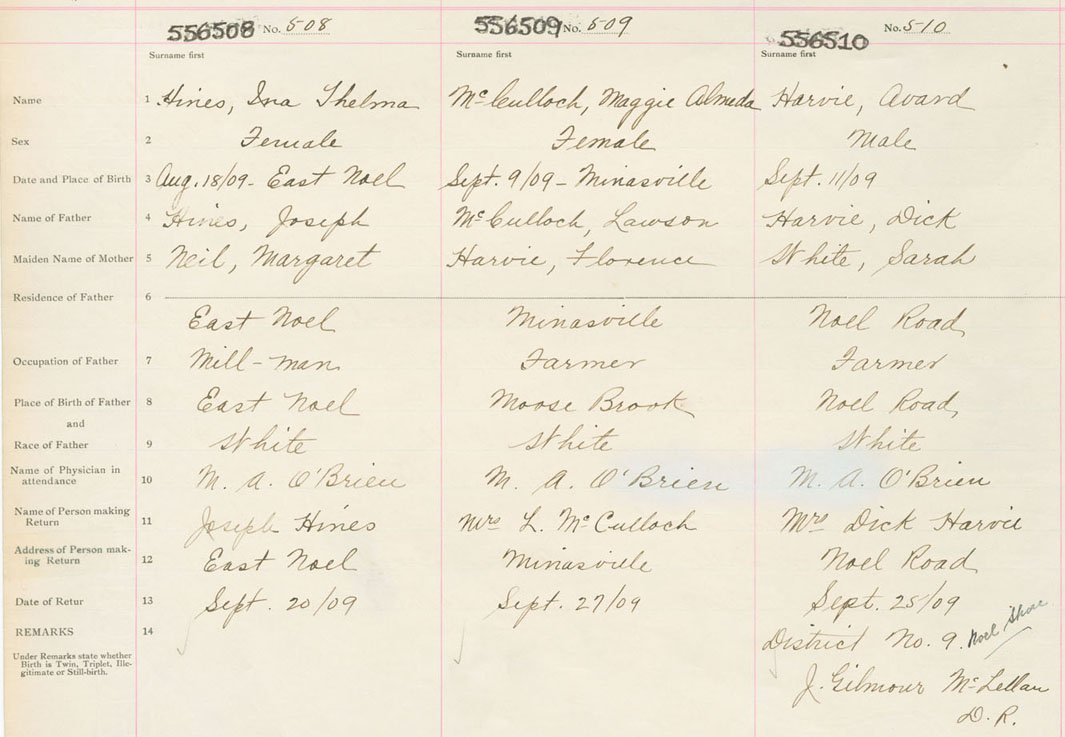 556508 No. 508 556509 No. 509 556510 No. 510
Surname first Surname first Surname first
Name 1 Hines, Ina Thelma McCulloch, Maggie Almeda Harvie, Avard
Sex 2 Female Female Male
Date and Place of Birth 3 Aug. 18/09 - East Noel Sept. 9/09 - Minasville Sept. 11/09
Name of Father 4 Hines, Joseph McCulloch, Lawson Harvie, Dick
Maiden Name of Mother 5 Neil, Margaret Harvie, Florence White, Sarah
Residence of Father 6
East Noel Minasville Noel Road
Occupation of Father 7 Mill-man Farmer Farmer
Place of Birth of Father 8 East Noel Moose Brook Noel Road
and
Race of Father 9 White White White
Name of Physician in
attendance 10 M. A. O'Brien M. A. O'Brien M. A. O'Brien
Name of Person making
Return 11 Joseph Hines Mrs L. McCulloch Mrs Dick Harvie
Address of Person mak-
ing Return 12 East Noel Minasville Noel Road
Date of Retur 13 Sept. 20/09 Sept. 27/09 Sept. 25/09
REMARKS 14 District No. 9. Noel Shore
Under Remarks state whether
Birth is Twin, Triplet, Ille-
gitimate or Still-birth.
J. Gilmour McLellan
D. R.